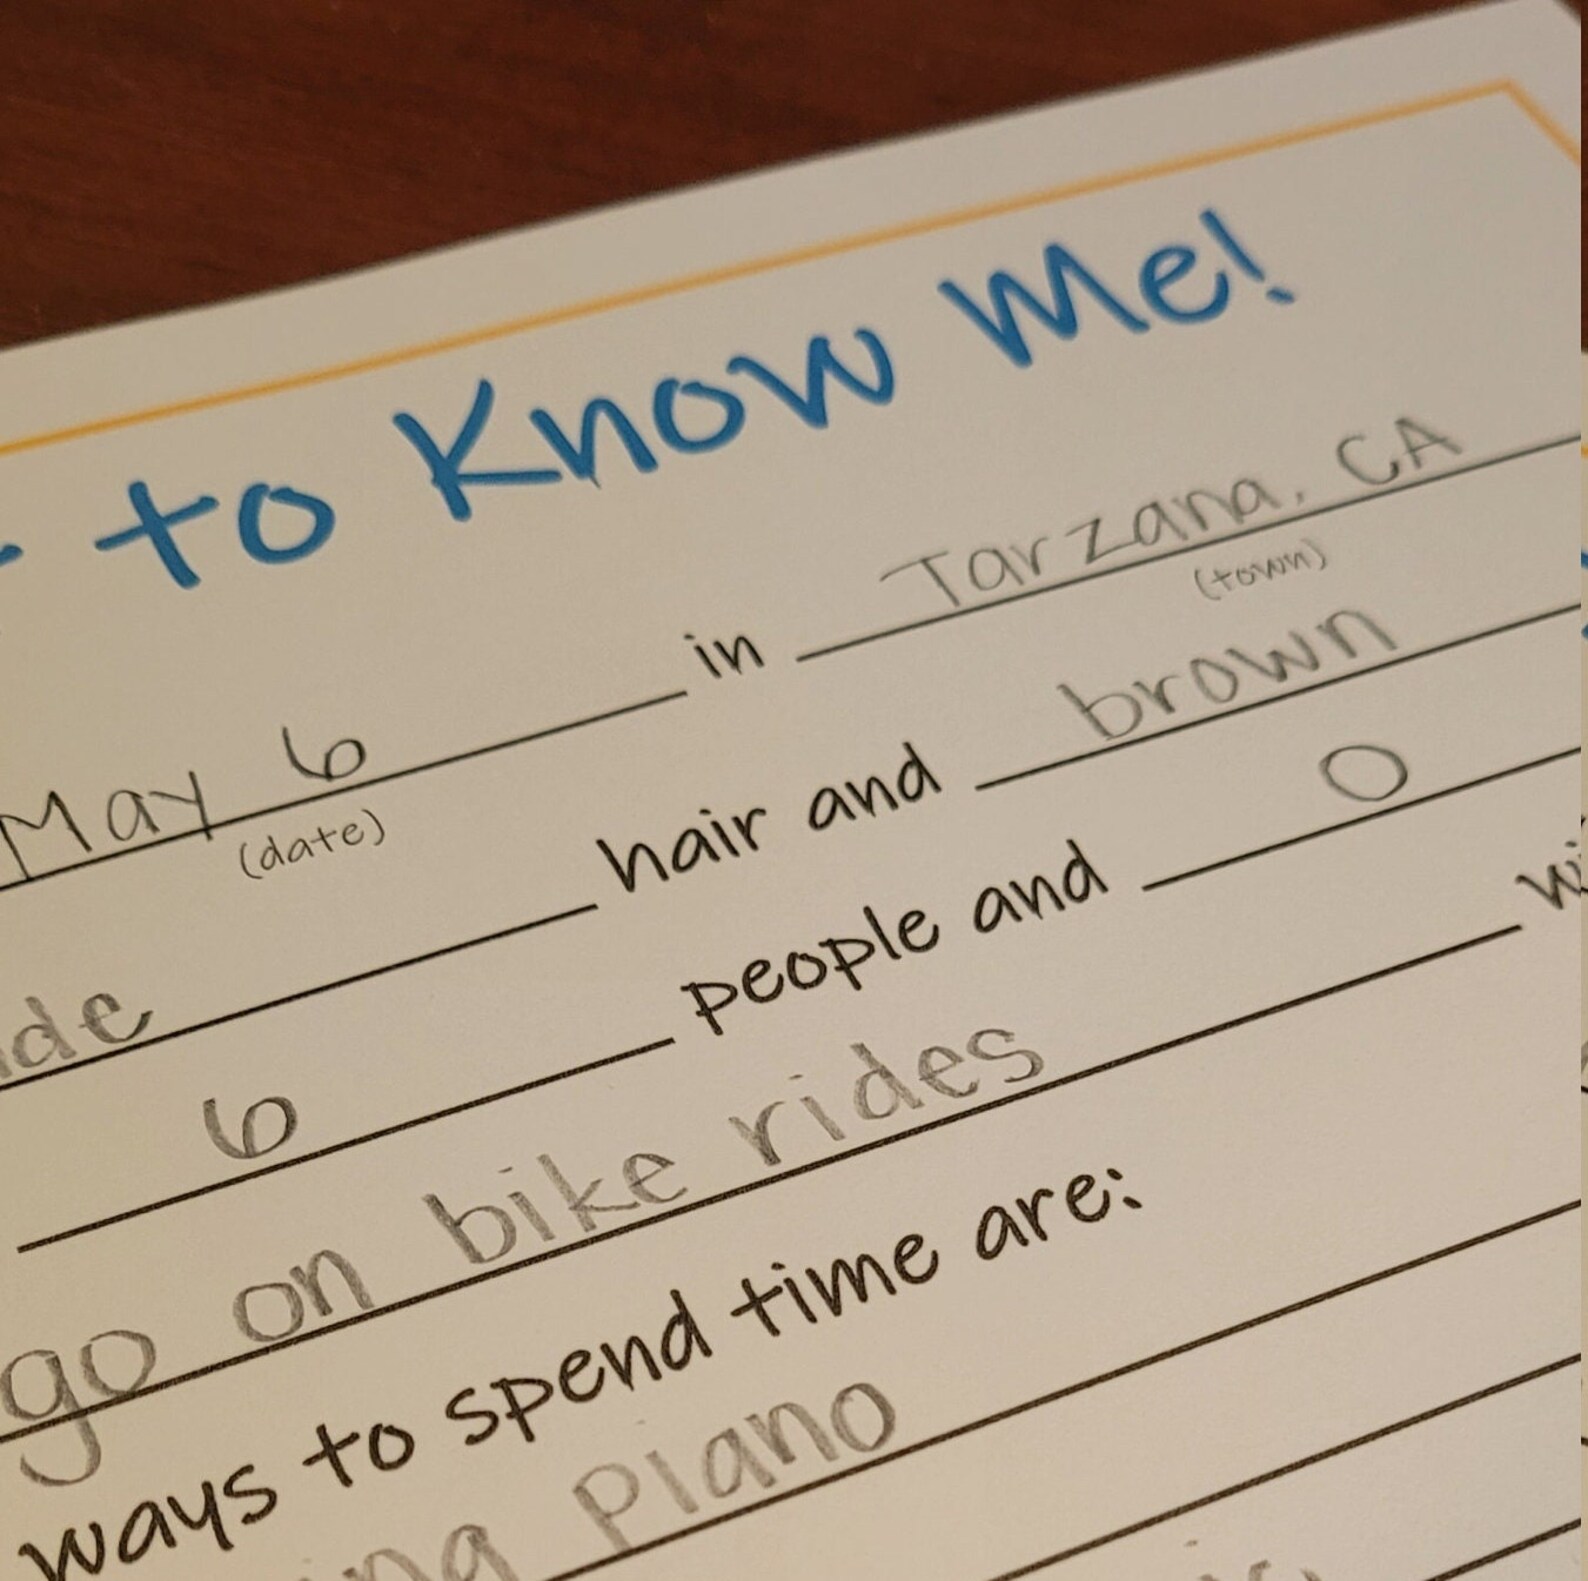 to Know Me!
May 6 in Tarzana, CA
(date) (town)
hair and brown
6 people and 0
go on bike rides
ways to spend time are:
Piano